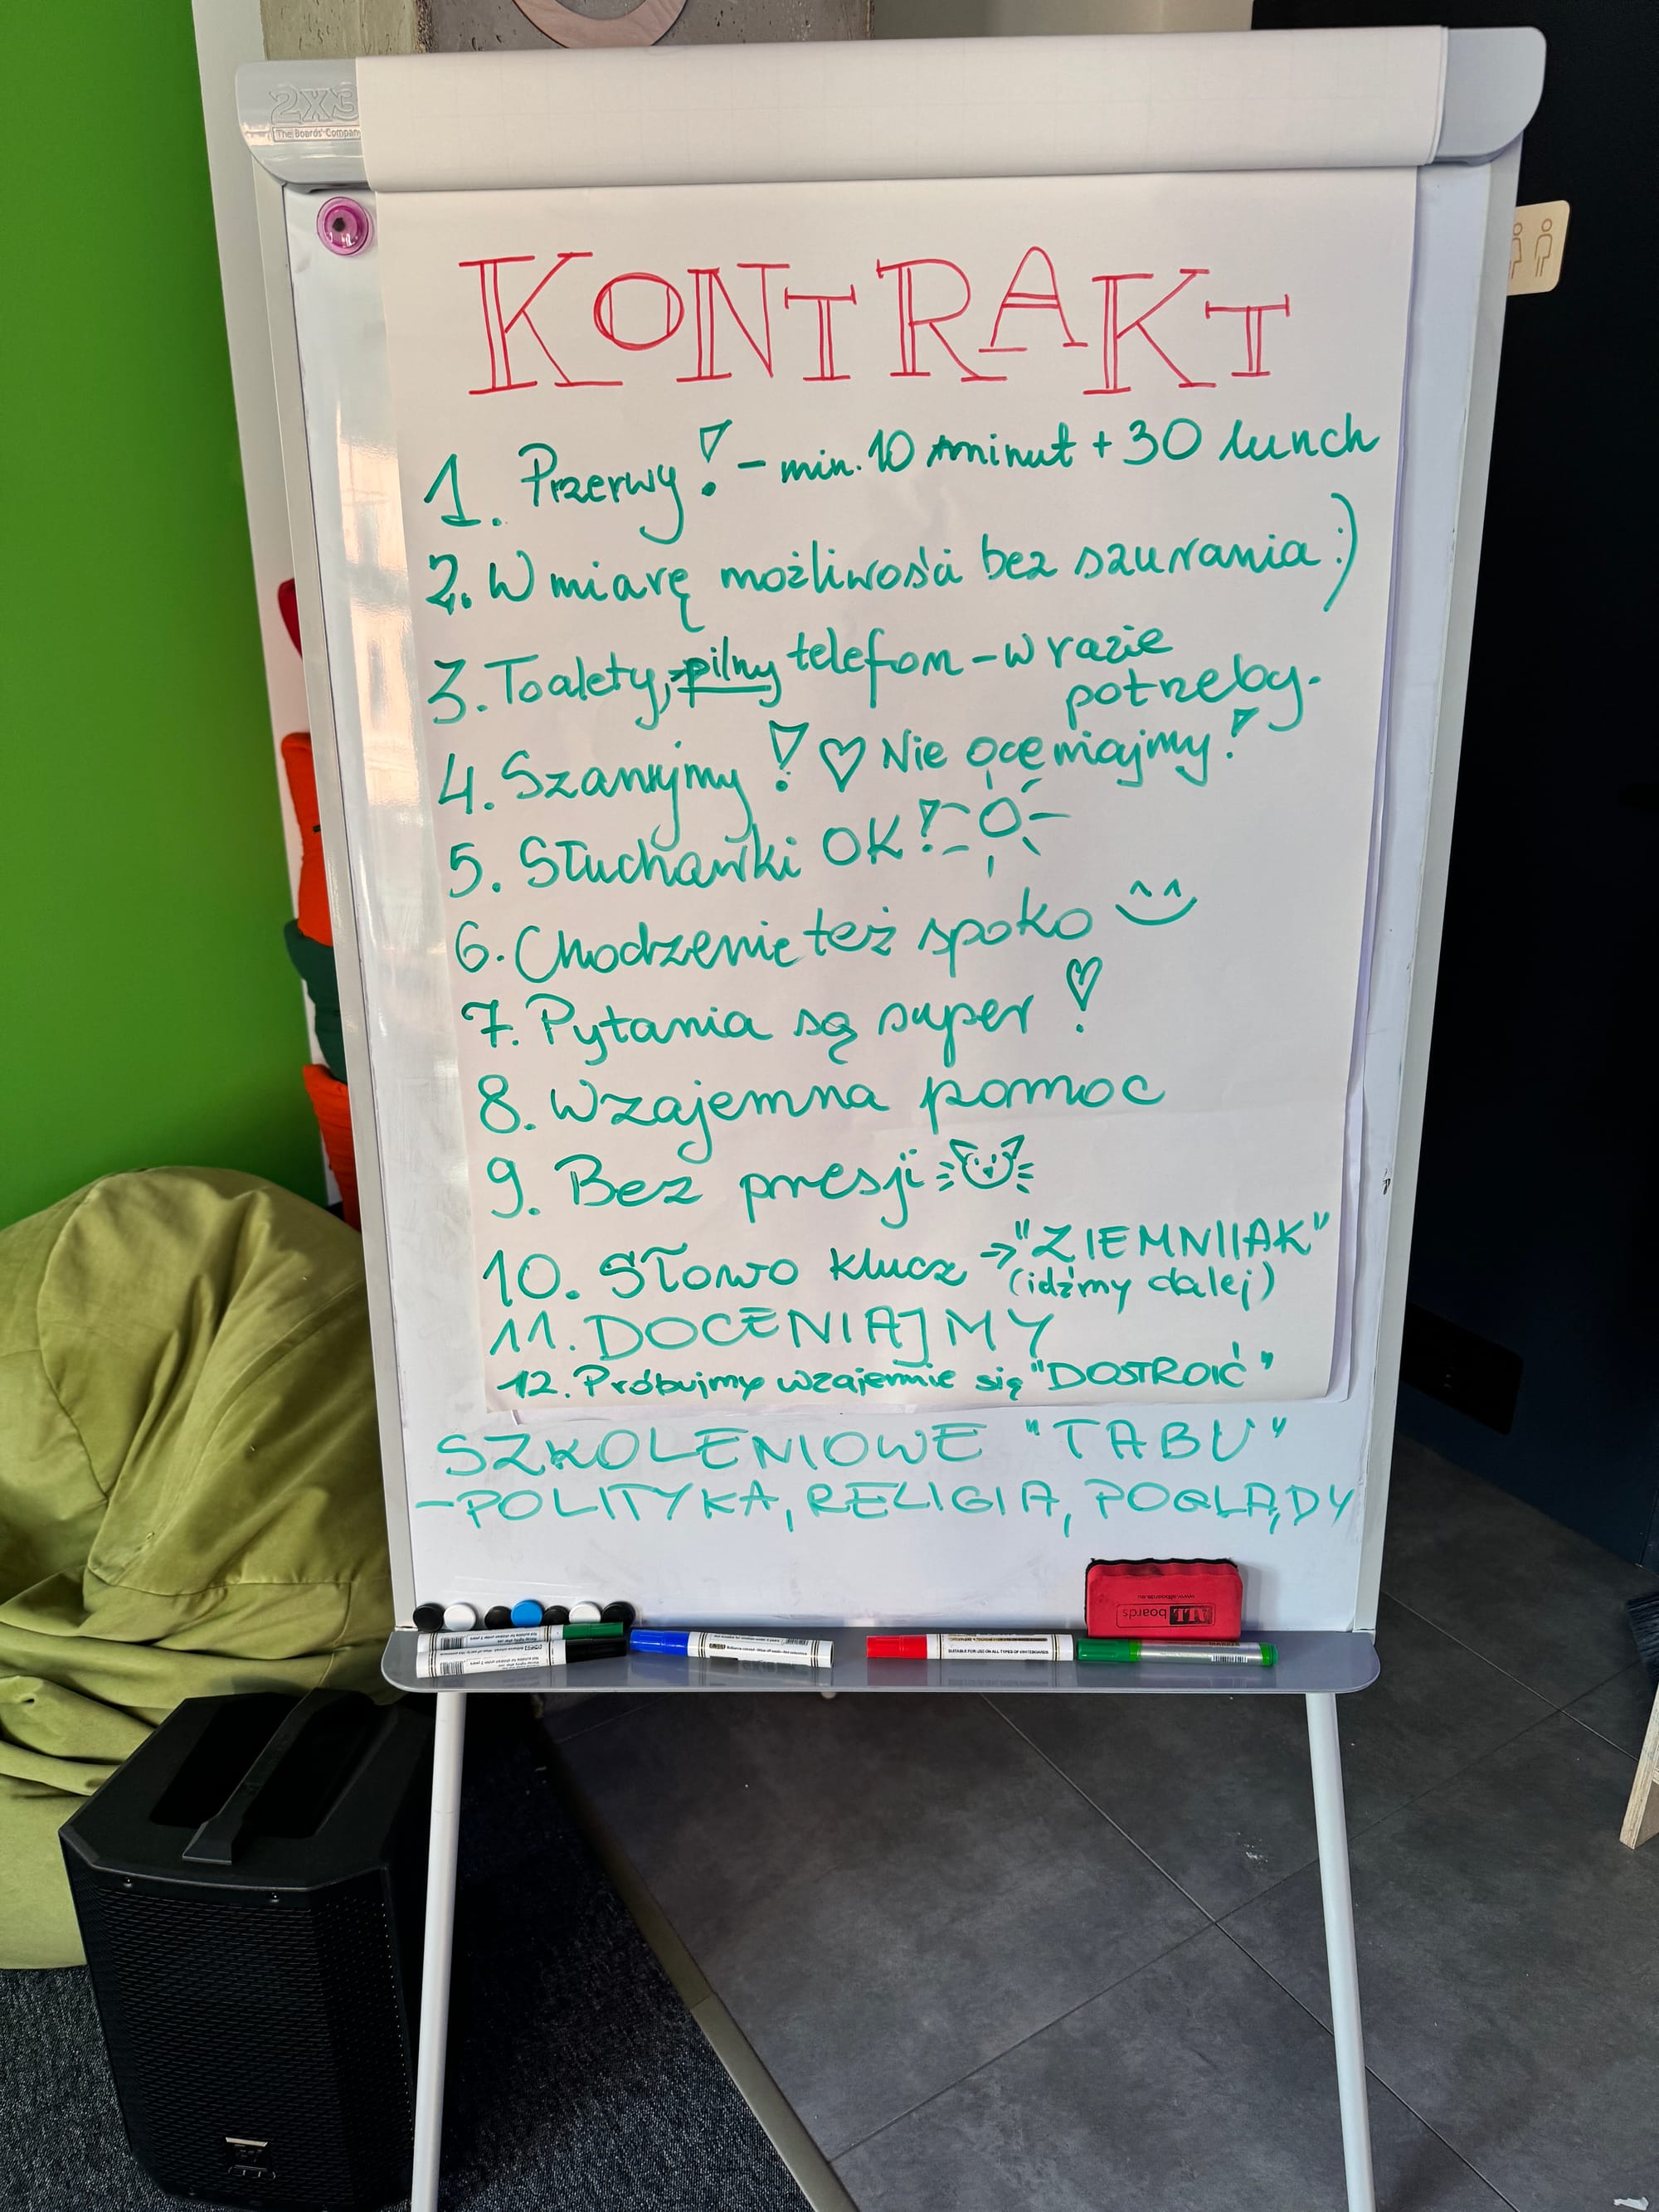 2X3
The Boards' Compan
KONTRAKT
1. Przerwy! - min. 10 minut + 30 lunch
2. W miarę możliwości bez szurania :)
3. Toalety, pilny telefon - w razie
potrzeby.
4. Szanujmy! ♡ Nie oceniajmy!
5. Słuchawki OK!
6. Chodzenie też spoko
7. Pytania są super!
8. Wzajemna pomoc
9. Bez presji
10. Słowo klucz → "ZIEMNIIAK"
(idźmy dalej)
11. DOCENIAJMY
12. Próbujmy wzajemnie się "DOSTROIĆ"
SZKOLENIOWE "TABU"
- POLITYKA, RELIGIA, POGLĄDY
ALL boards